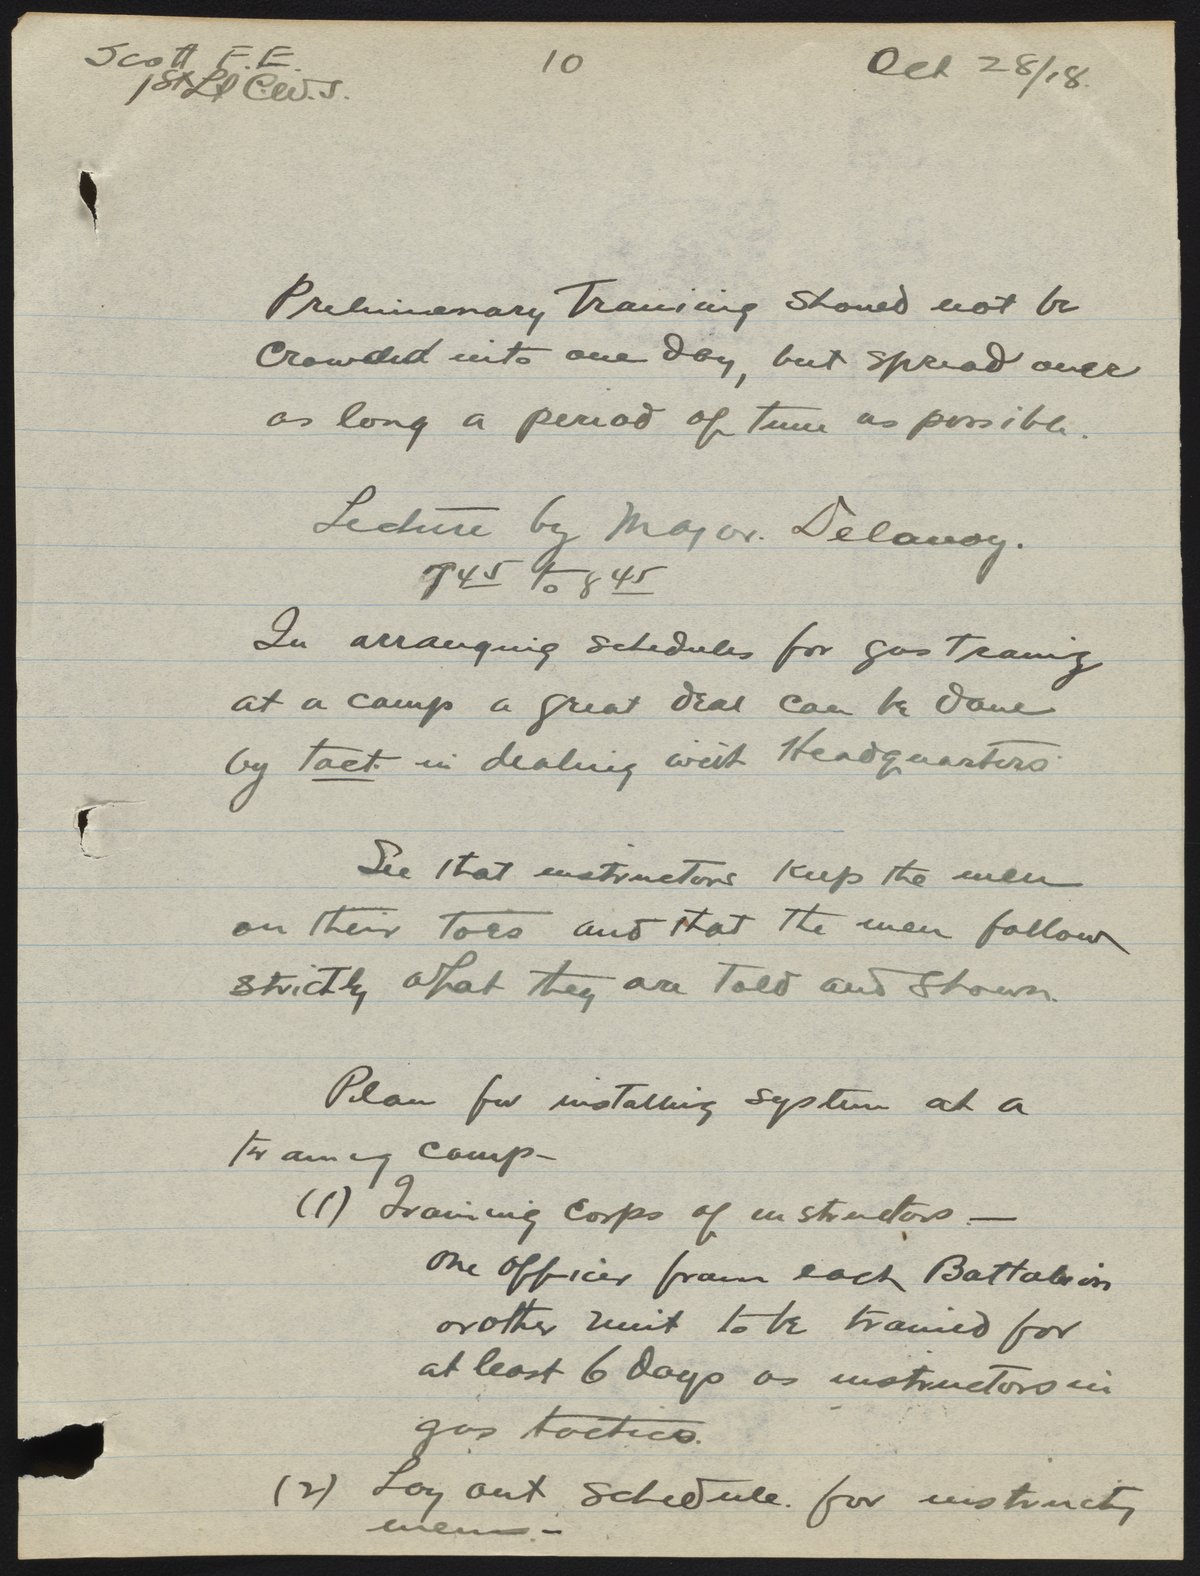 Scott F. E. 10 Oct 28/18.
1st Lt C.W.S.
Preliminary Training should not be
Crowded into one day, but spread over
as long a period of time as possible.
Lecture by Major. Delanoy.
7 45 to 8 45
In arranging schedules for gas training
at a camp a great deal can be done
by tact. in dealing with Headquarters
See that instructors keep the men
on their toes and that the men follow
strictly what they are told and shown.
Plan for installing system at a
training camp-
(1) Training Corps of instructors -
One officer from each Battalion
or other unit to be trained for
at least 6 days as instructors in
gas tactics.
(2) Lay out schedule. for instructing
men. -